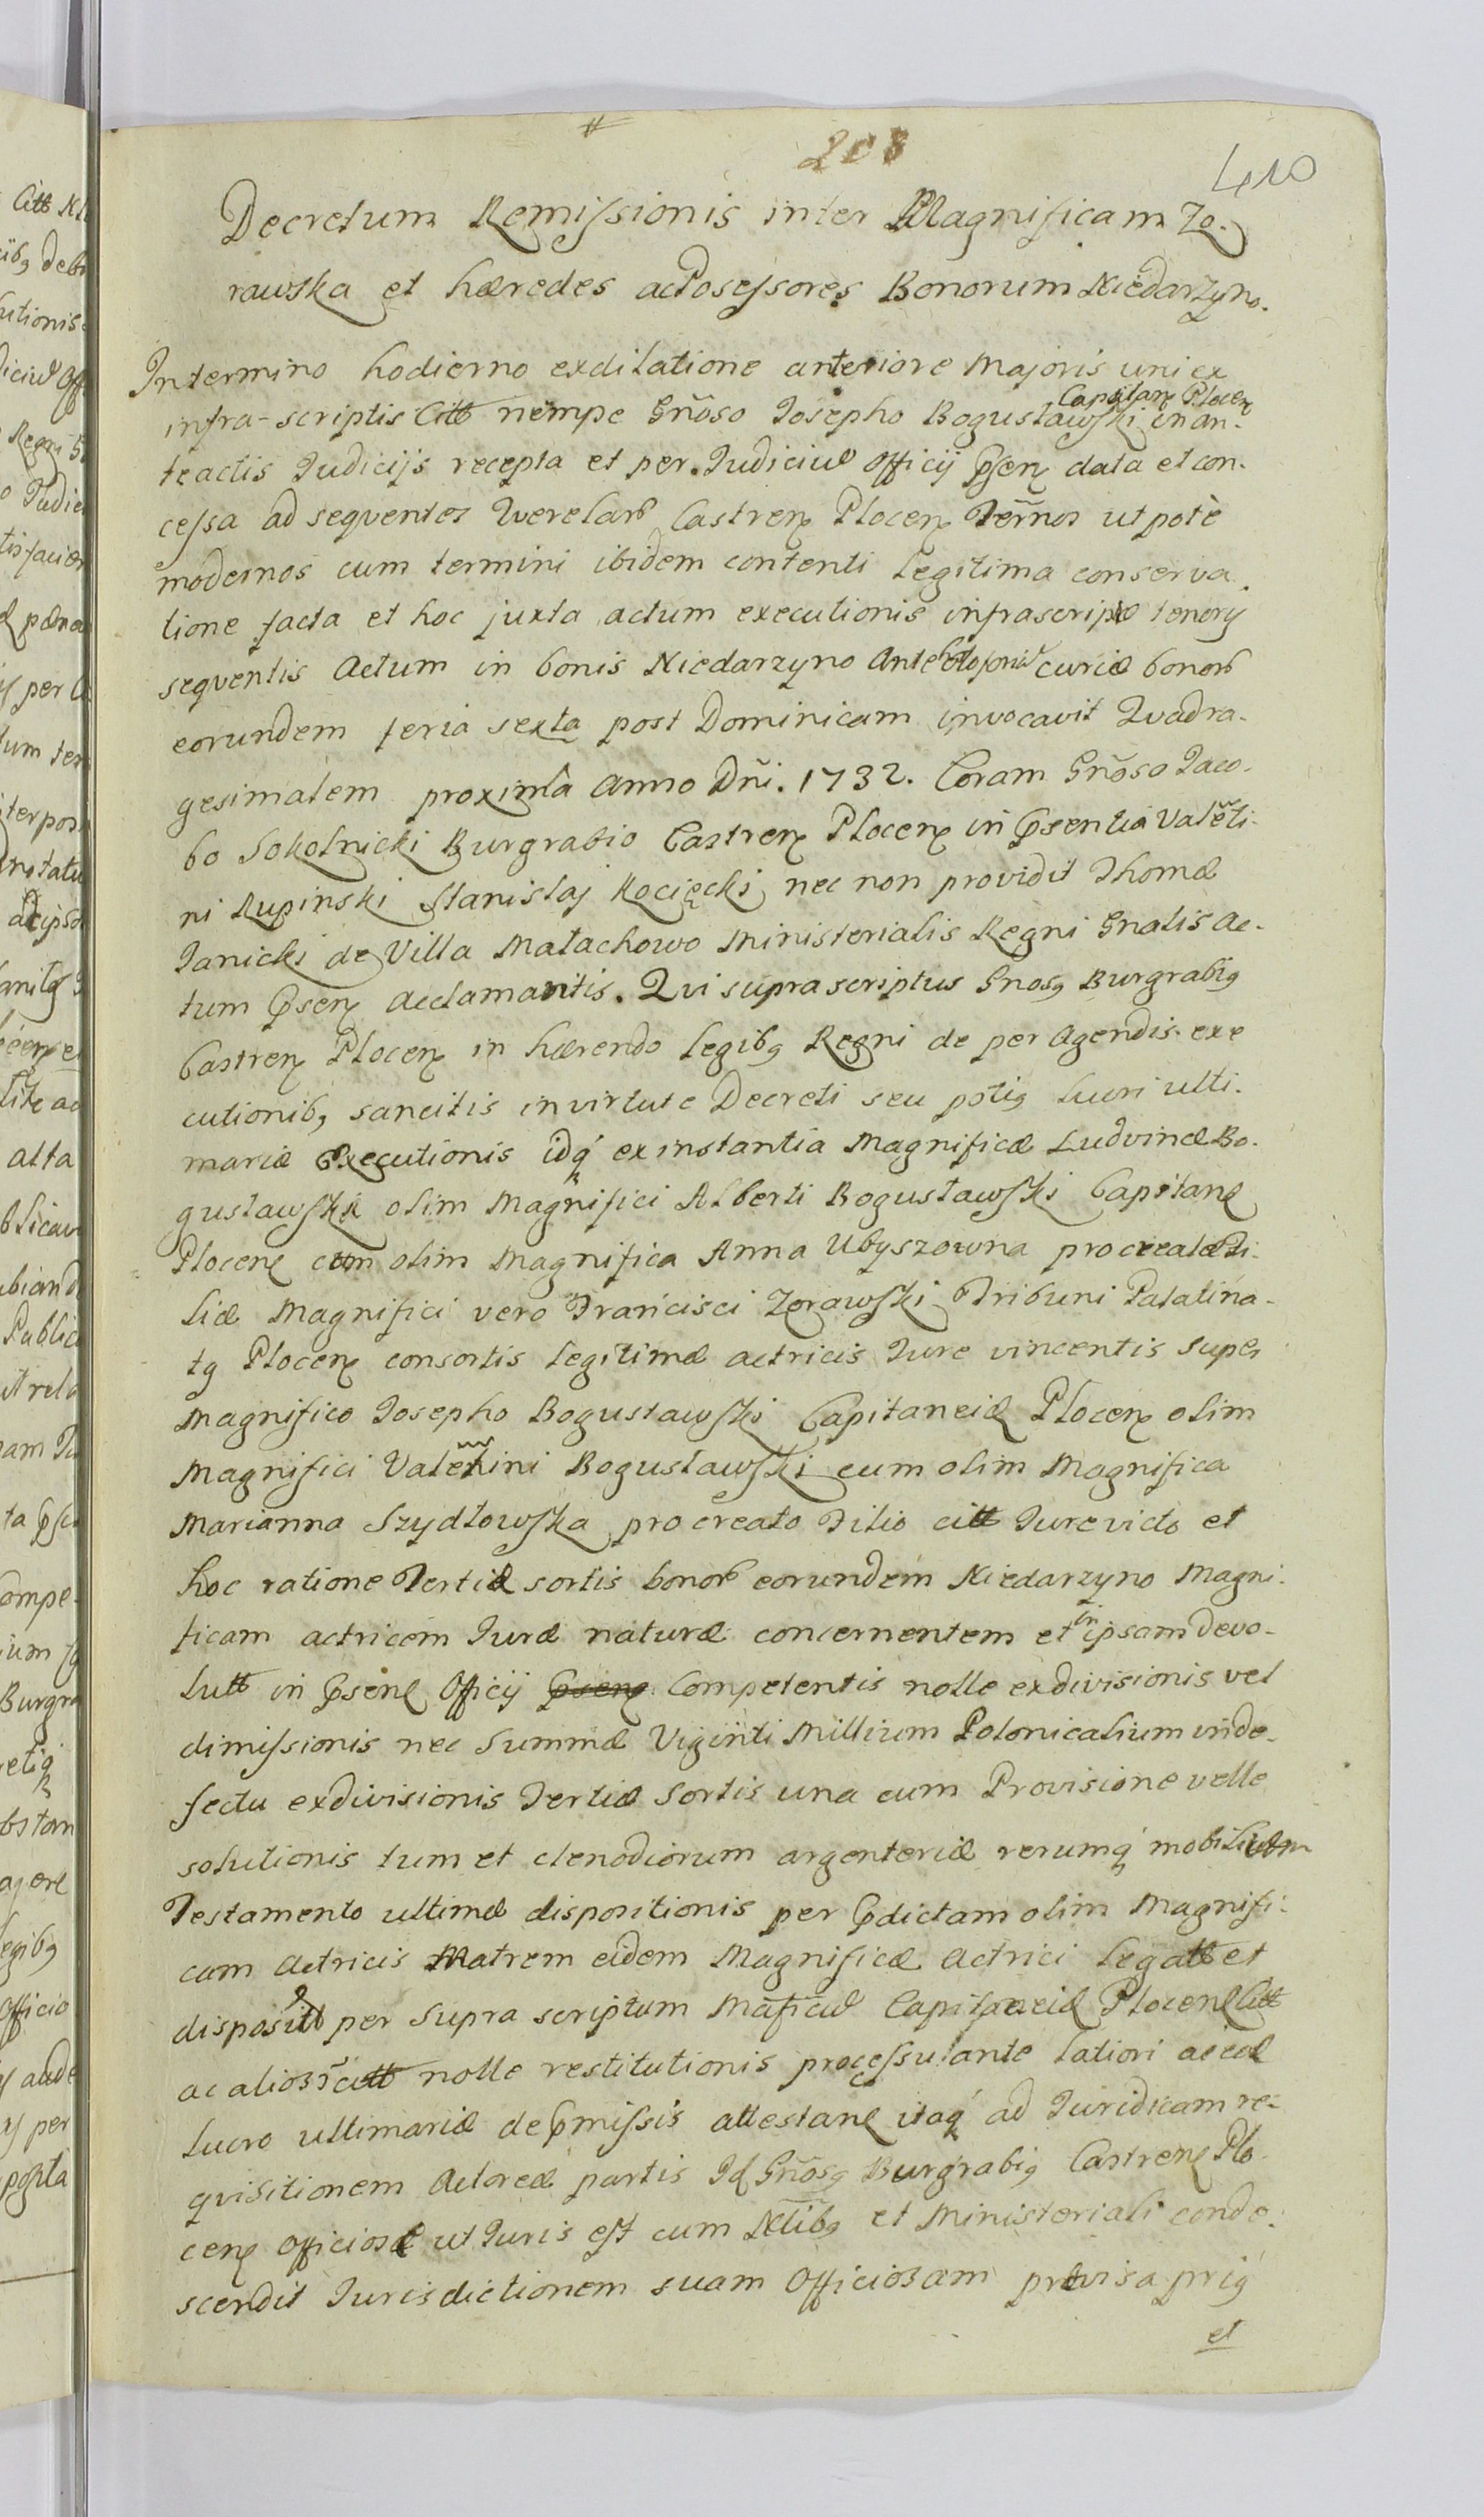 208
410
Decretum Remissionis inter Magnificam Zo-
rawska et hæredes ac Posessores Bonorum Niedarzyno.
In termino hodierno ex dilatione anteriore Majoris uni ex
infra-scriptis Citt nempe Gnoso Josepho Bogusławski Capitan Plocen in an-
teactis Judicijs recepta et per Judiciũ Officij Psen data et con-
cessa ad seqventes Qverelarũ Castren Plocen Terños ut potè
modernos cum termini ibidem contenti Legitima conserva-
tione facta et hoc juxta actum executionis infrascriptæ tenoris
seqventis Actum in bonis Niedarzyno Ante curiæ bonorũ
eorundem feria sexta post Dominicam invocavit Qvadra-
gesimalem proxima Anno Dñi. 1732. Coram Gñoso Jaco-
bo Sokolnicki Burgrabio Castren Plocen in Psentia Valẽti-
ni Rupinski Stanislaj Kocięcki nec non providi Thomæ
Janicki de Villa Małachowo Ministerialis Regni Gnalis Ac-
tum Psen Acclamantis. Qvi supra scriptus Gnosq Burgrabiq
Castren Plocen in hærendo Legibq Regni de per agendis exe
cutionibq sancitis in virtute Decreti seu potiq Lucri ulti-
mariæ Executionis idq́ ex instantia Magnificæ Ludvinæ Bo-
gusławska olim Magnifici Alberti Bogusławski Capitane
Plocen cum olim Magnifica Anna Ubyszowna procreatæ Fi-
liæ Magnifici vero Francisci Zorawski Tribuni Palatina-
tq Plocen consortis Legitimæ actricis Jure vincentis super
Magnifico Josepho Bogusławski Capitaneid Plocen olim
Magnifici Valẽtini Bogusławski cum olim Magnifica
Marianna Szydłowska procreato Filio citt Jure victo et
hoc ratione Tertiæ sortis bonorũ eorundem Niedarzyno Magni-
ficam actricem Jure naturæ concernentem et in ipsam devo-
lutt in Psene Officij Psene Competentis nolle exdivisionis vel
dimissionis nec Summæ Viginti Millium Polonicalium in de-
fectu exdivisionis Tertiæ Sortis una cum Provisione velle
solutionis tum et clenodiorum argenteriæ rerumq́ mobilium
Testamento ultimæ dispositionis per Pdictam olim Magnifi-
cam Actricis Matrem eidem Magnificæ Actrici Legatt et
disposit per Supra scriptum Mãficũ Capitaneid Plocen Citt
ac alios citt nolle restitutionis processu ante Latiori ac eoæ
Lucro ultimariæ de Pmissis attestane itaq́ ad Juridicam re-
qvisitionem Actoreæ partis Id Gñosq Burgrabiq Castren Plo-
cen Officiosæ ut Juris est cum Nlibq et Ministeriali conde-
scendit Jurisdictionem suam Officiosam prævisa priq
et